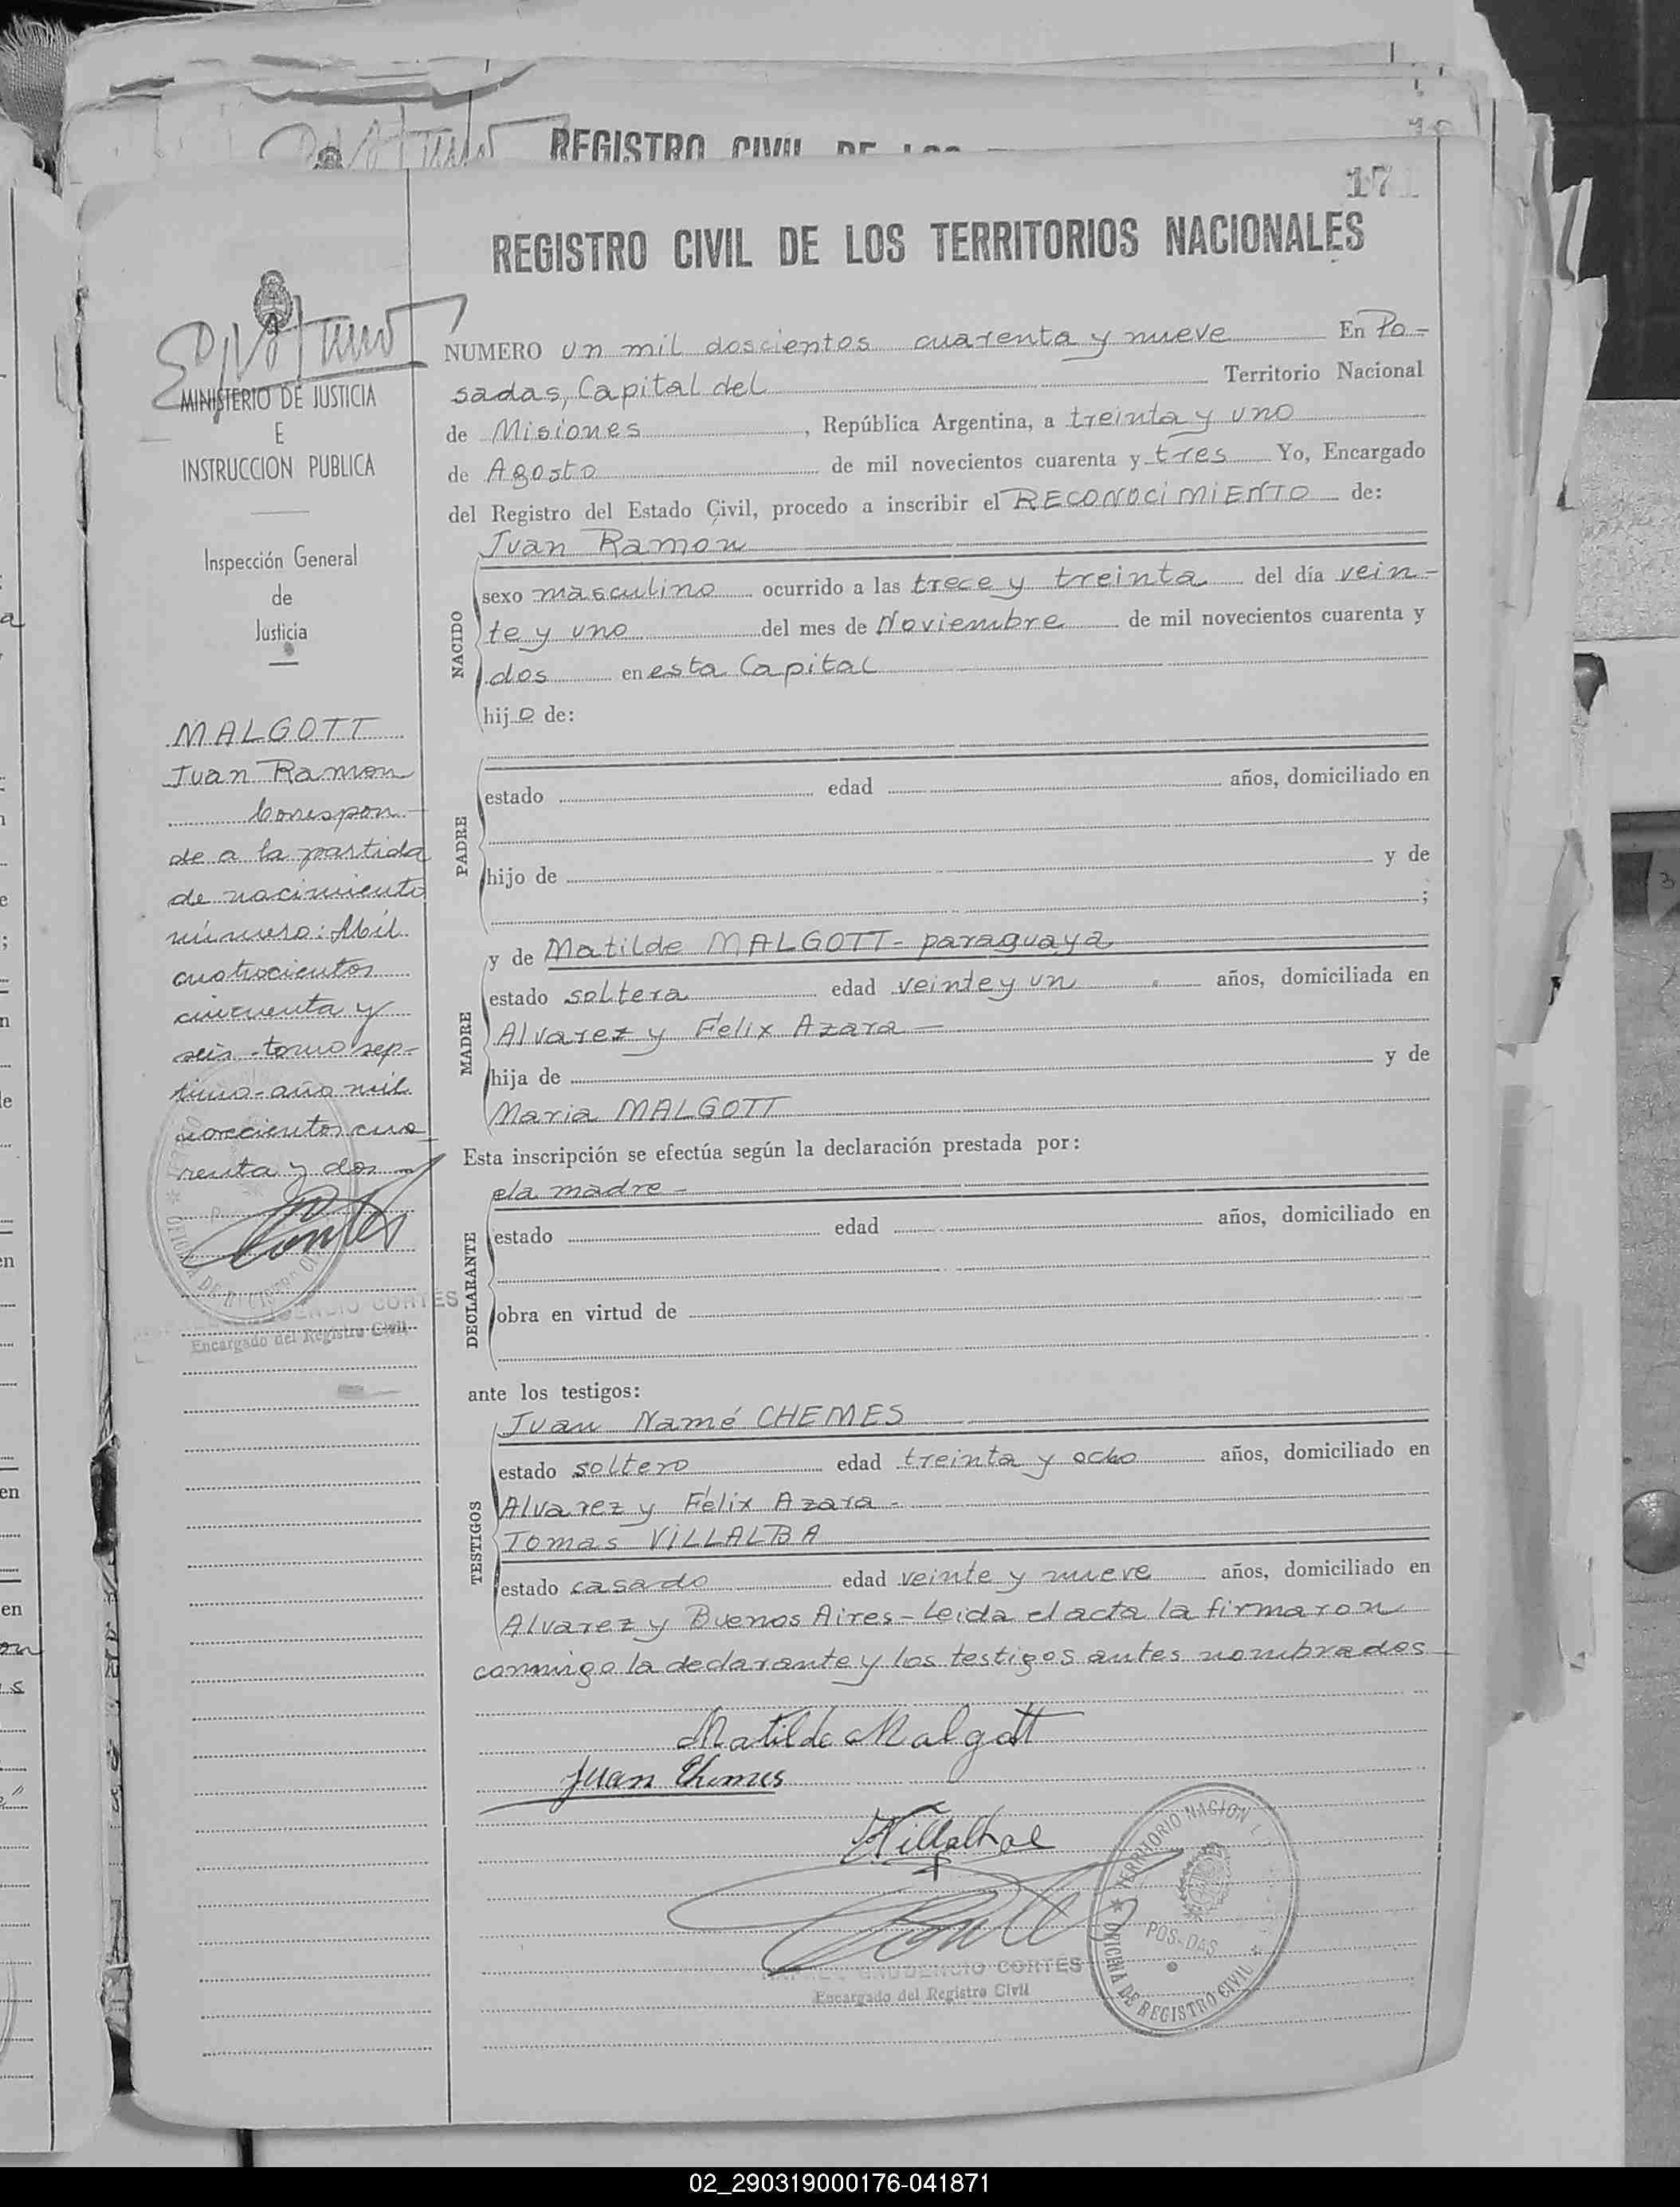 REGISTRO CIVIL DE LOS
171
REGISTRO CIVIL DE LOS TERRITORIOS NACIONALES
MINISTERIO DE JUSTICIA
E
INSTRUCCION PUBLICA
Inspección General
de
Justicia
MALGOTT
Juan Ramon
Correspon-
de a la partida
de nacimiento
número: Mil
cuatrocientos
cincuenta y
seis - tomo sep-
timo - año mil
novecientos cua
renta y dos
CORTES
Encargado del Registro Civil
NUMERO un mil doscientos cuarenta y nueve En Po-
sadas, Capital del Territorio Nacional
de Misiones, República Argentina, a treinta y uno
de Agosto de mil novecientos cuarenta y tres Yo, Encargado
del Registro del Estado Civil, procedo a inscribir el RECONOCIMIENTO de:
NACIDO
Juan Ramon
sexo masculino ocurrido a las trece y treinta del día vein-
te y uno del mes de Noviembre de mil novecientos cuarenta y
dos en esta Capital
hijo de:
PADRE
estado edad años, domiciliado en
hijo de y de
;
MADRE
y de Matilde MALGOTT - paraguaya
estado soltera edad veinte y un años, domiciliada en
Alvarez y Felix Azara -
hija de y de
Maria MALGOTT
Esta inscripción se efectúa según la declaración prestada por:
DECLARANTE
la madre -
estado edad años, domiciliado en
obra en virtud de
ante los testigos:
TESTIGOS
Juan Namé CHEMES
estado soltero edad treinta y ocho años, domiciliado en
Alvarez y Félix Azara -
Tomas VILLALBA
estado casado edad veinte y nueve años, domiciliado en
Alvarez y Buenos Aires - Leida el acta la firmaron
conmigo la declarante y los testigos antes nombrados
Matilde Malgott
Juan Chemes
Villalba
GAUDENCIO CORTES
Encargado del Registro Civil
TERRITORIO NACION
POSADAS
OFICINA DE REGISTRO CIVIL
02_290319000176-041871